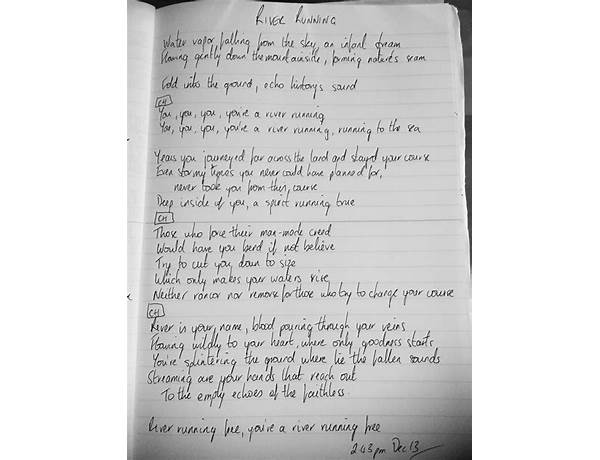 RIVER RUNNING
Water vapor falling from the sky, an infant stream
Flowing gently down the mountainside, forming nature's seam
Fold into the ground, echo history's sound
CH
You, you, you, you're a river running
You, you, you, you're a river running, running to the sea
Years you journeyed far across the land and stayed your course
Even stormy times you never could have planned for,
never took you from this, course
Deep inside of you, a spirit running true
CH
Those who force their man-made creed
Would have you bend if not believe
Try to cut you down to size
Which only makes your waters rise
Neither rancor nor remorse for those who try to change your course
CH
River is your name, blood pouring through your veins
Flowing wildly to your heart, where only goodness starts
You're splintering the ground where lie the fallen sounds
Streaming are your hands that reach out
To the empty echoes of the faithless.
River running free, you're a river running free
2.43pm Dec 13